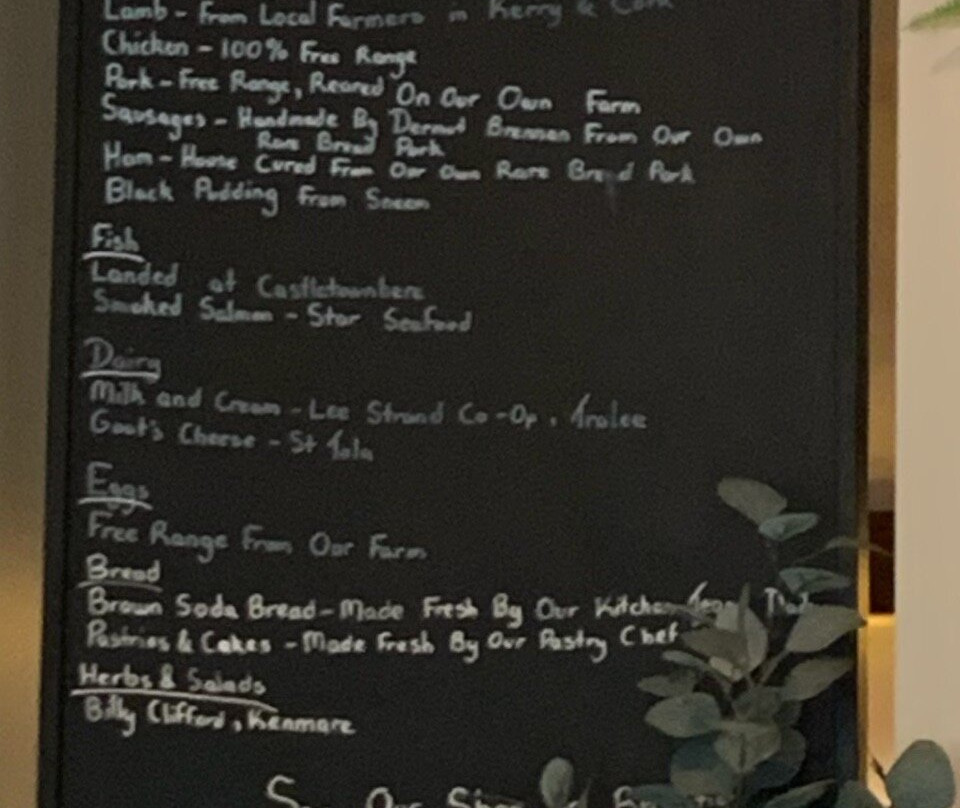 Lamb - From Local Farmers in Kerry & Cork
Chicken - 100% Free Range
Pork - Free Range, Reared On Our Own Farm
Sausages - Handmade By Dermot Brennan From Our Own
Rare Breed Pork
Ham - House Cured From Our Own Rare Breed Pork
Black Pudding From Sneem
Fish
Landed at Castletownbere
Smoked Salmon - Star Seafood
Dairy
Milk and Cream - Lee Strand Co-Op, Tralee
Goat's Cheese - St Tola
Eggs
Free Range From Our Farm
Bread
Brown Soda Bread - Made Fresh By Our Kitchen
Pastries & Cakes - Made Fresh By Our Pastry Chef
Herbs & Salads
Billy Clifford, Kenmare
Our